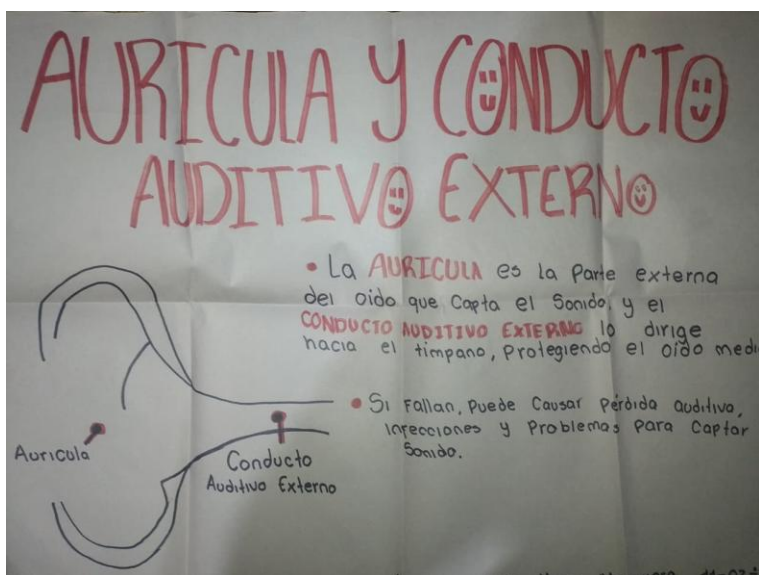 AURICULA Y CONDUCTO
AUDITIVO EXTERNO
• La AURICULA es la parte externa
del oido que Capta el Sonido, y el
CONDUCTO AUDITIVO EXTERNO lo dirige
hacia el timpano, Protegiendo el oído medi
• Si Fallan, Puede Causar Pérdida auditiva,
infecciones y Problemas Para Captar
Sonido.
Auricula
Conducto
Auditivo Externo